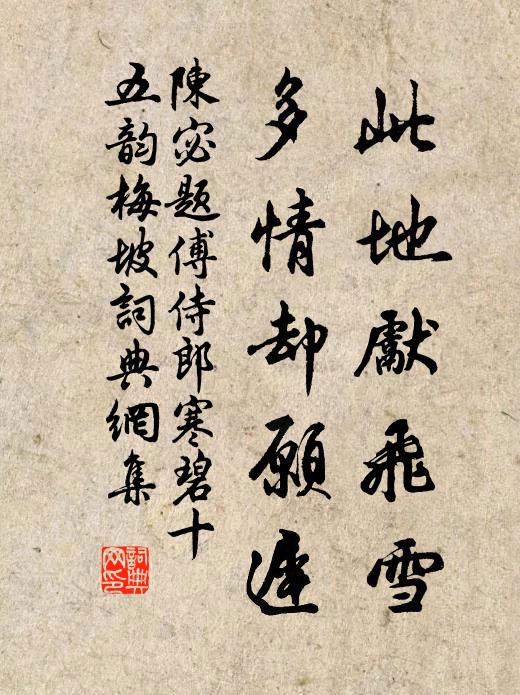 此地獻飛雪
多情却願遲
陳宓題傅侍郎寒碧十
五韵梅坡詞典網集
詞典网印